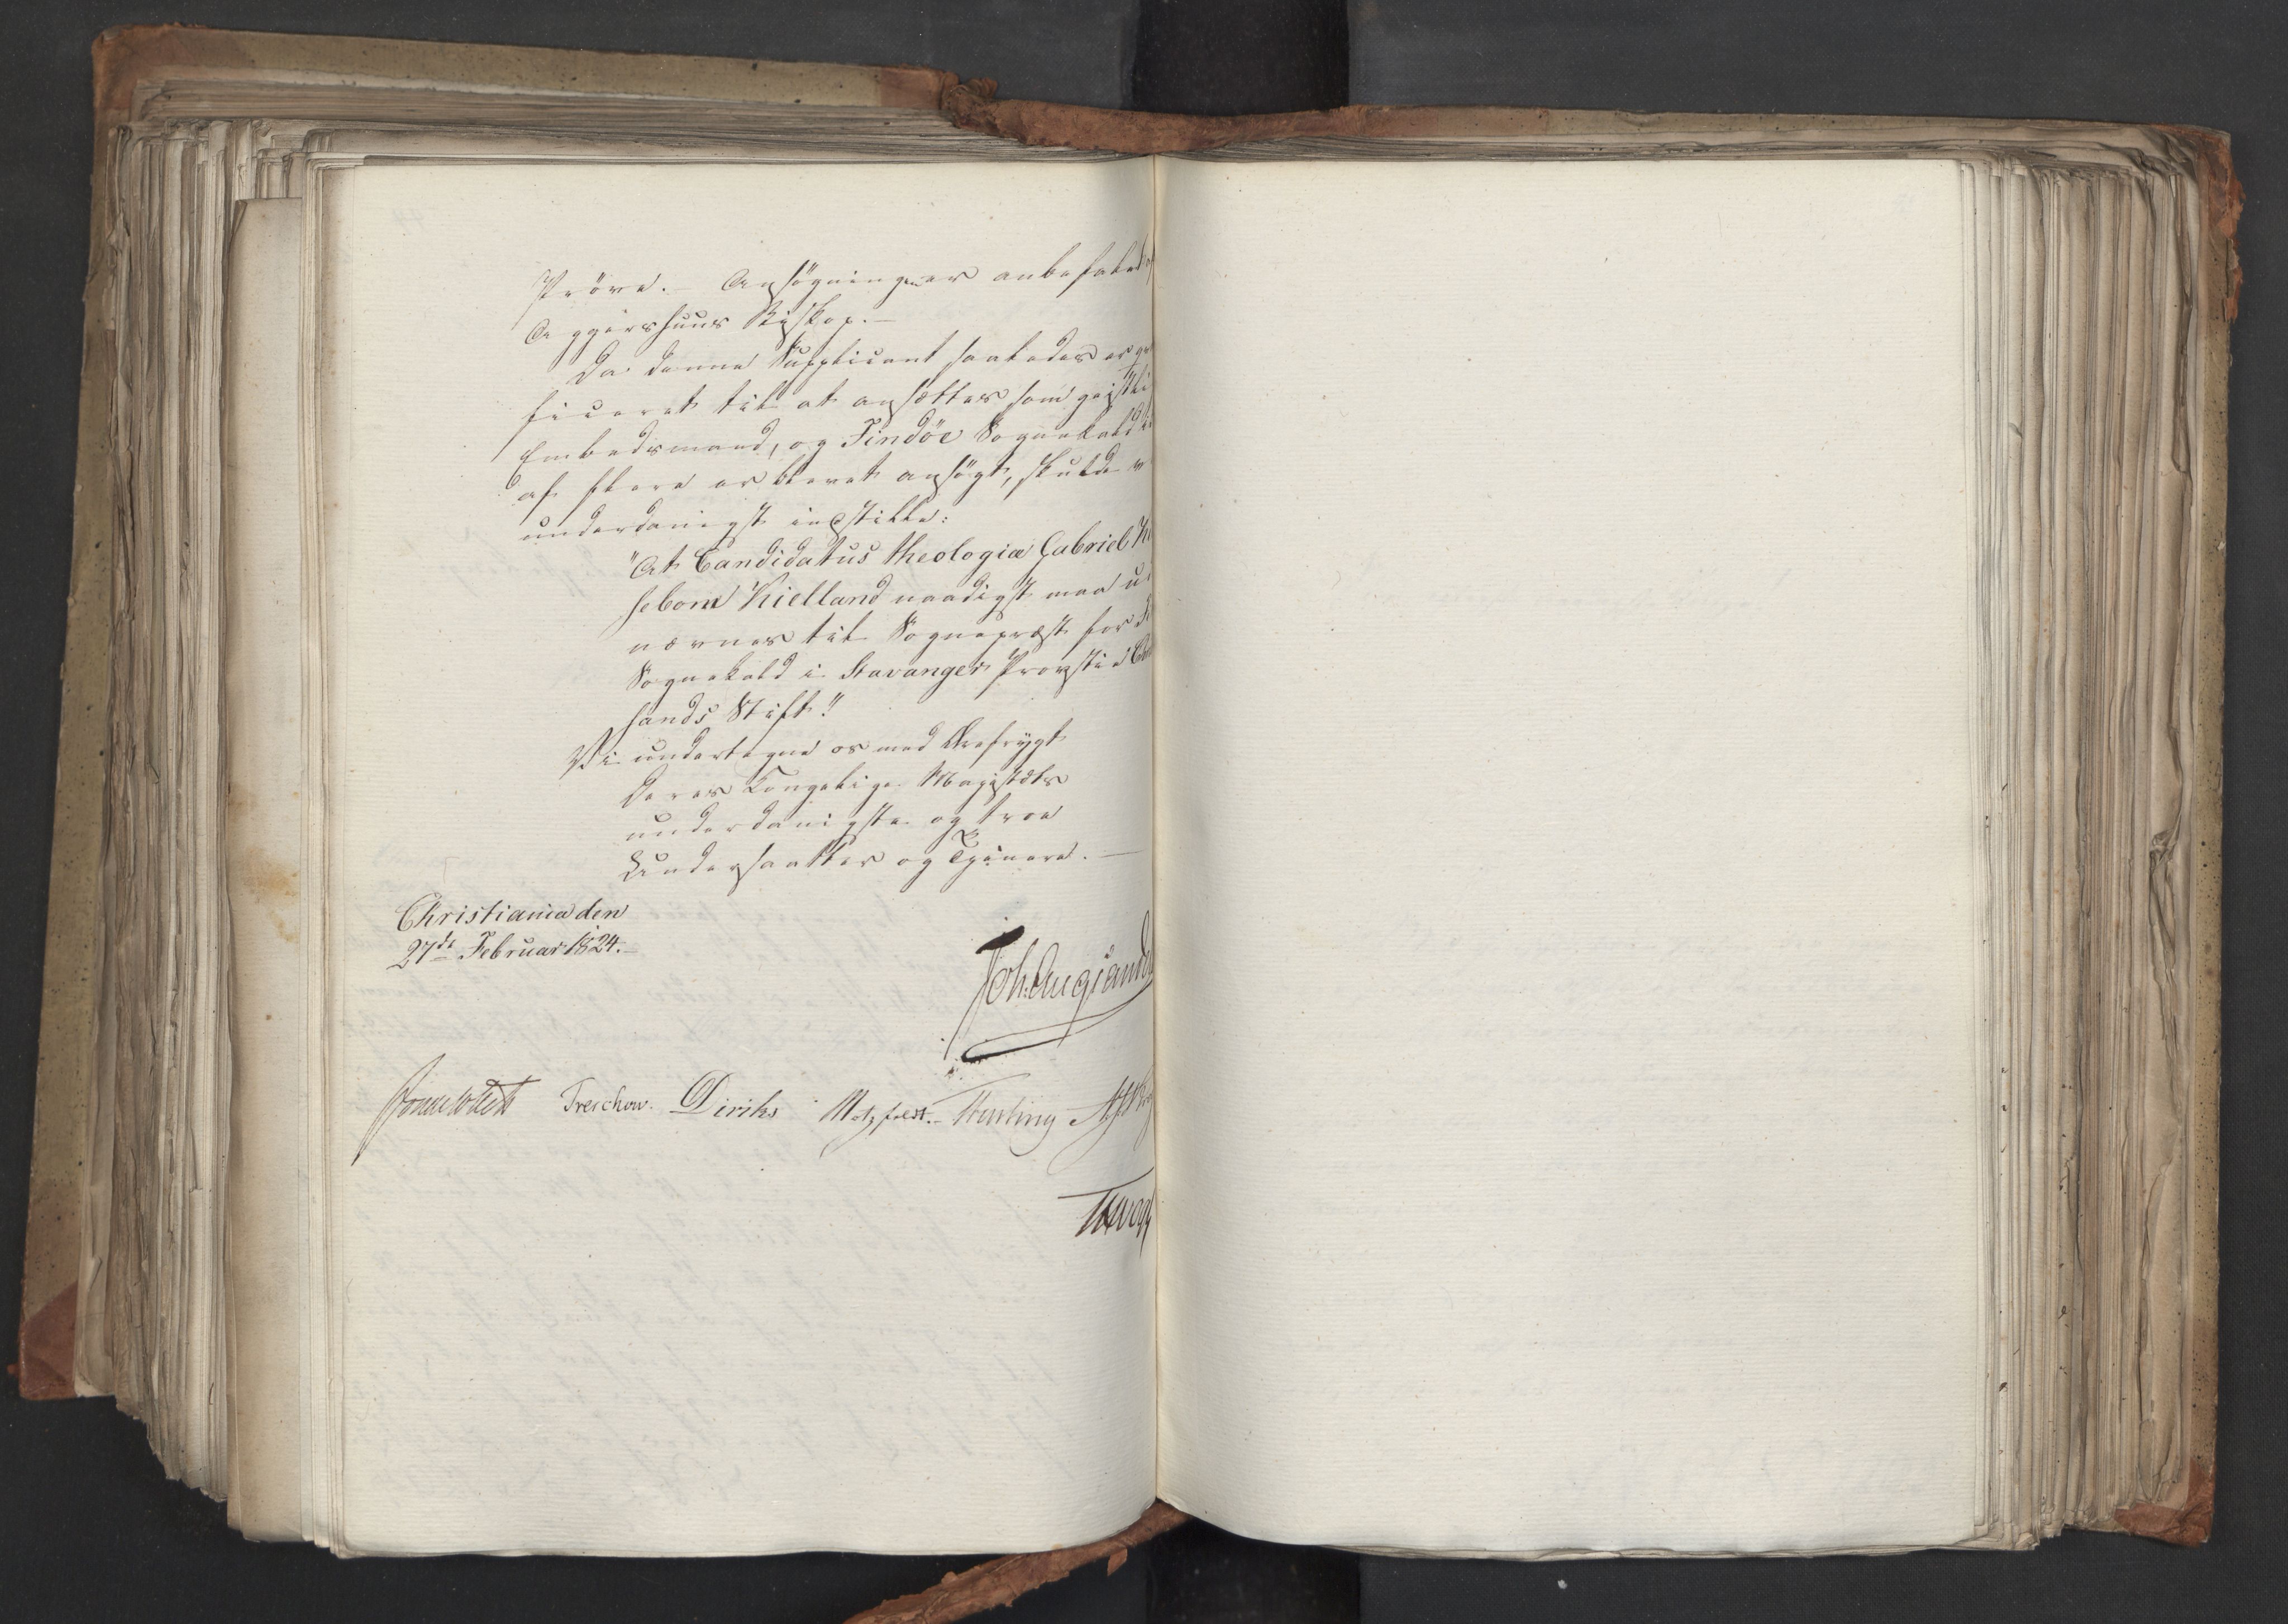 Pröve. — Ansøgningen er anbefalet af
Aggershuus Biskop. —
Da denne Supplicant saaledes er
ficeret til at ansættes som geistli
Embedsmand, og Findöe Sognekald ei
af flere er blevet ansøgt, skulde v
underdanigst indstille:
"At Candidatus theologiæ Gabriel Ki
sebom Kielland naadigst maa ud
nævnes til Sognepræst for Fi
Sognekald i Stavanger Provstie
sands Stift."
Vi undertegne os med Ærefrygt
Deres Kongelige Majestæts
underdanigste og troe
Undersaatter og Tjenere. —
Christiania den
27de Februar 1824. —
Joh. Aug Sande
Sommerfeldt Treschow. Diriks Motzfeldt. — Fasting